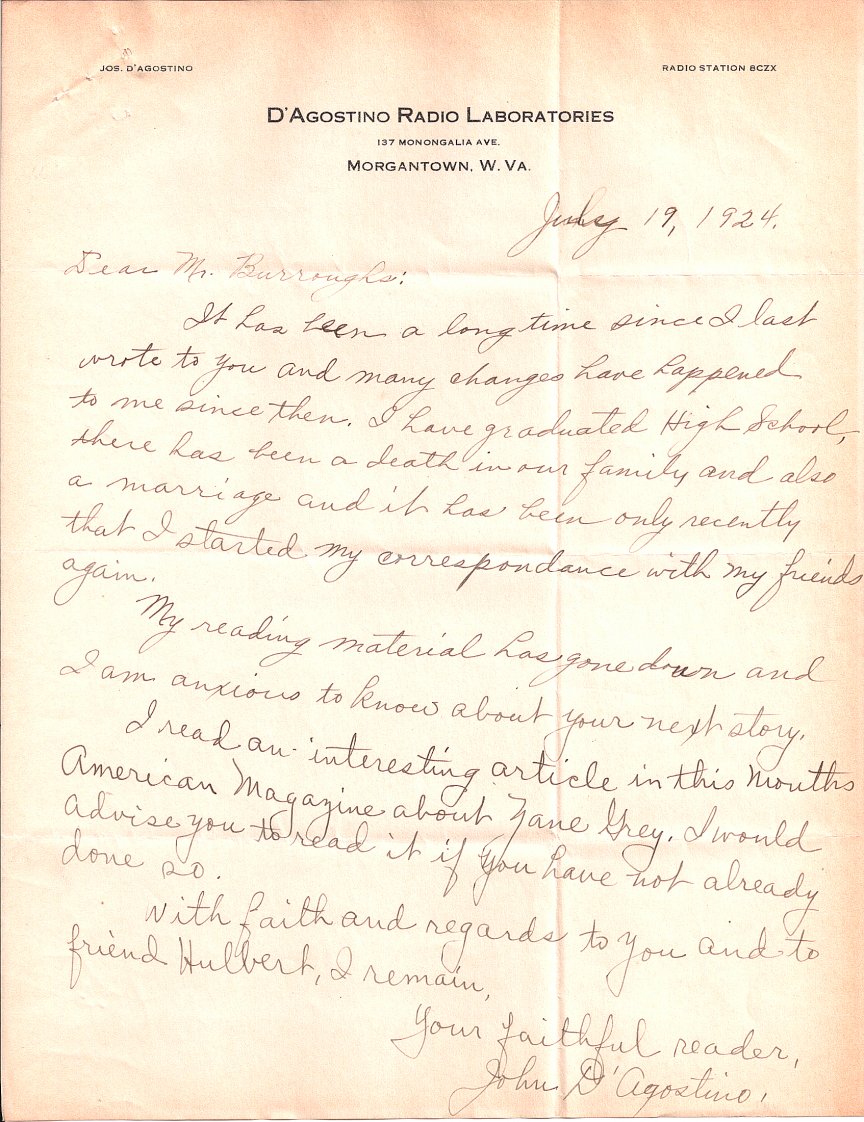 JOS. D'AGOSTINO
RADIO STATION 8CZX
D'AGOSTINO RADIO LABORATORIES
137 MONONGALIA AVE.
MORGANTOWN, W. VA.
July 19, 1924.
Dear Mr. Burroughs:
It has been a long time since I last
wrote to you and many changes have happened
to me since then. I have graduated High School,
there has been a death in our family and also
a marriage and it has been only recently
that I started my correspondance with my friends
again.
My reading material has gone down and
I am anxious to know about your next story.
I read an interesting article in this Months
American Magazine about Zane Grey. I would
advise you to read it if you have not already
done so.
With faith and regards to you and to
friend Hulbert, I remain,
Your faithful reader,
John D'Agostino.